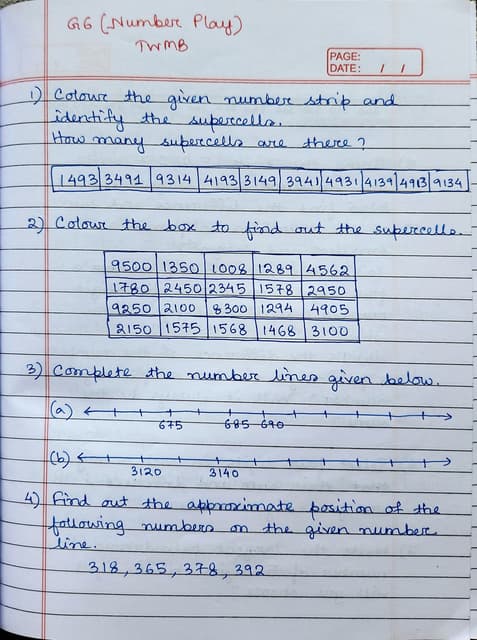 G6 (Number Play)
TWMB
PAGE:
DATE: / /
1) Colour the given number strip and
identify the supercells.
How many supercells are there?
1493 3491 9314 4193 3149 3941 4931 4139 4913 9134
2) Colour the box to find out the supercells.
9500 1350 1008 1289 4562
1780 2450 2345 1578 2950
9250 2100 8300 1294 4905
2150 1575 1568 1468 3100
3) Complete the number lines given below.
(a)
675 685 690
(b)
3120 3140
4) Find out the approximate position of the
following numbers on the given number
line.
318, 365, 378, 392